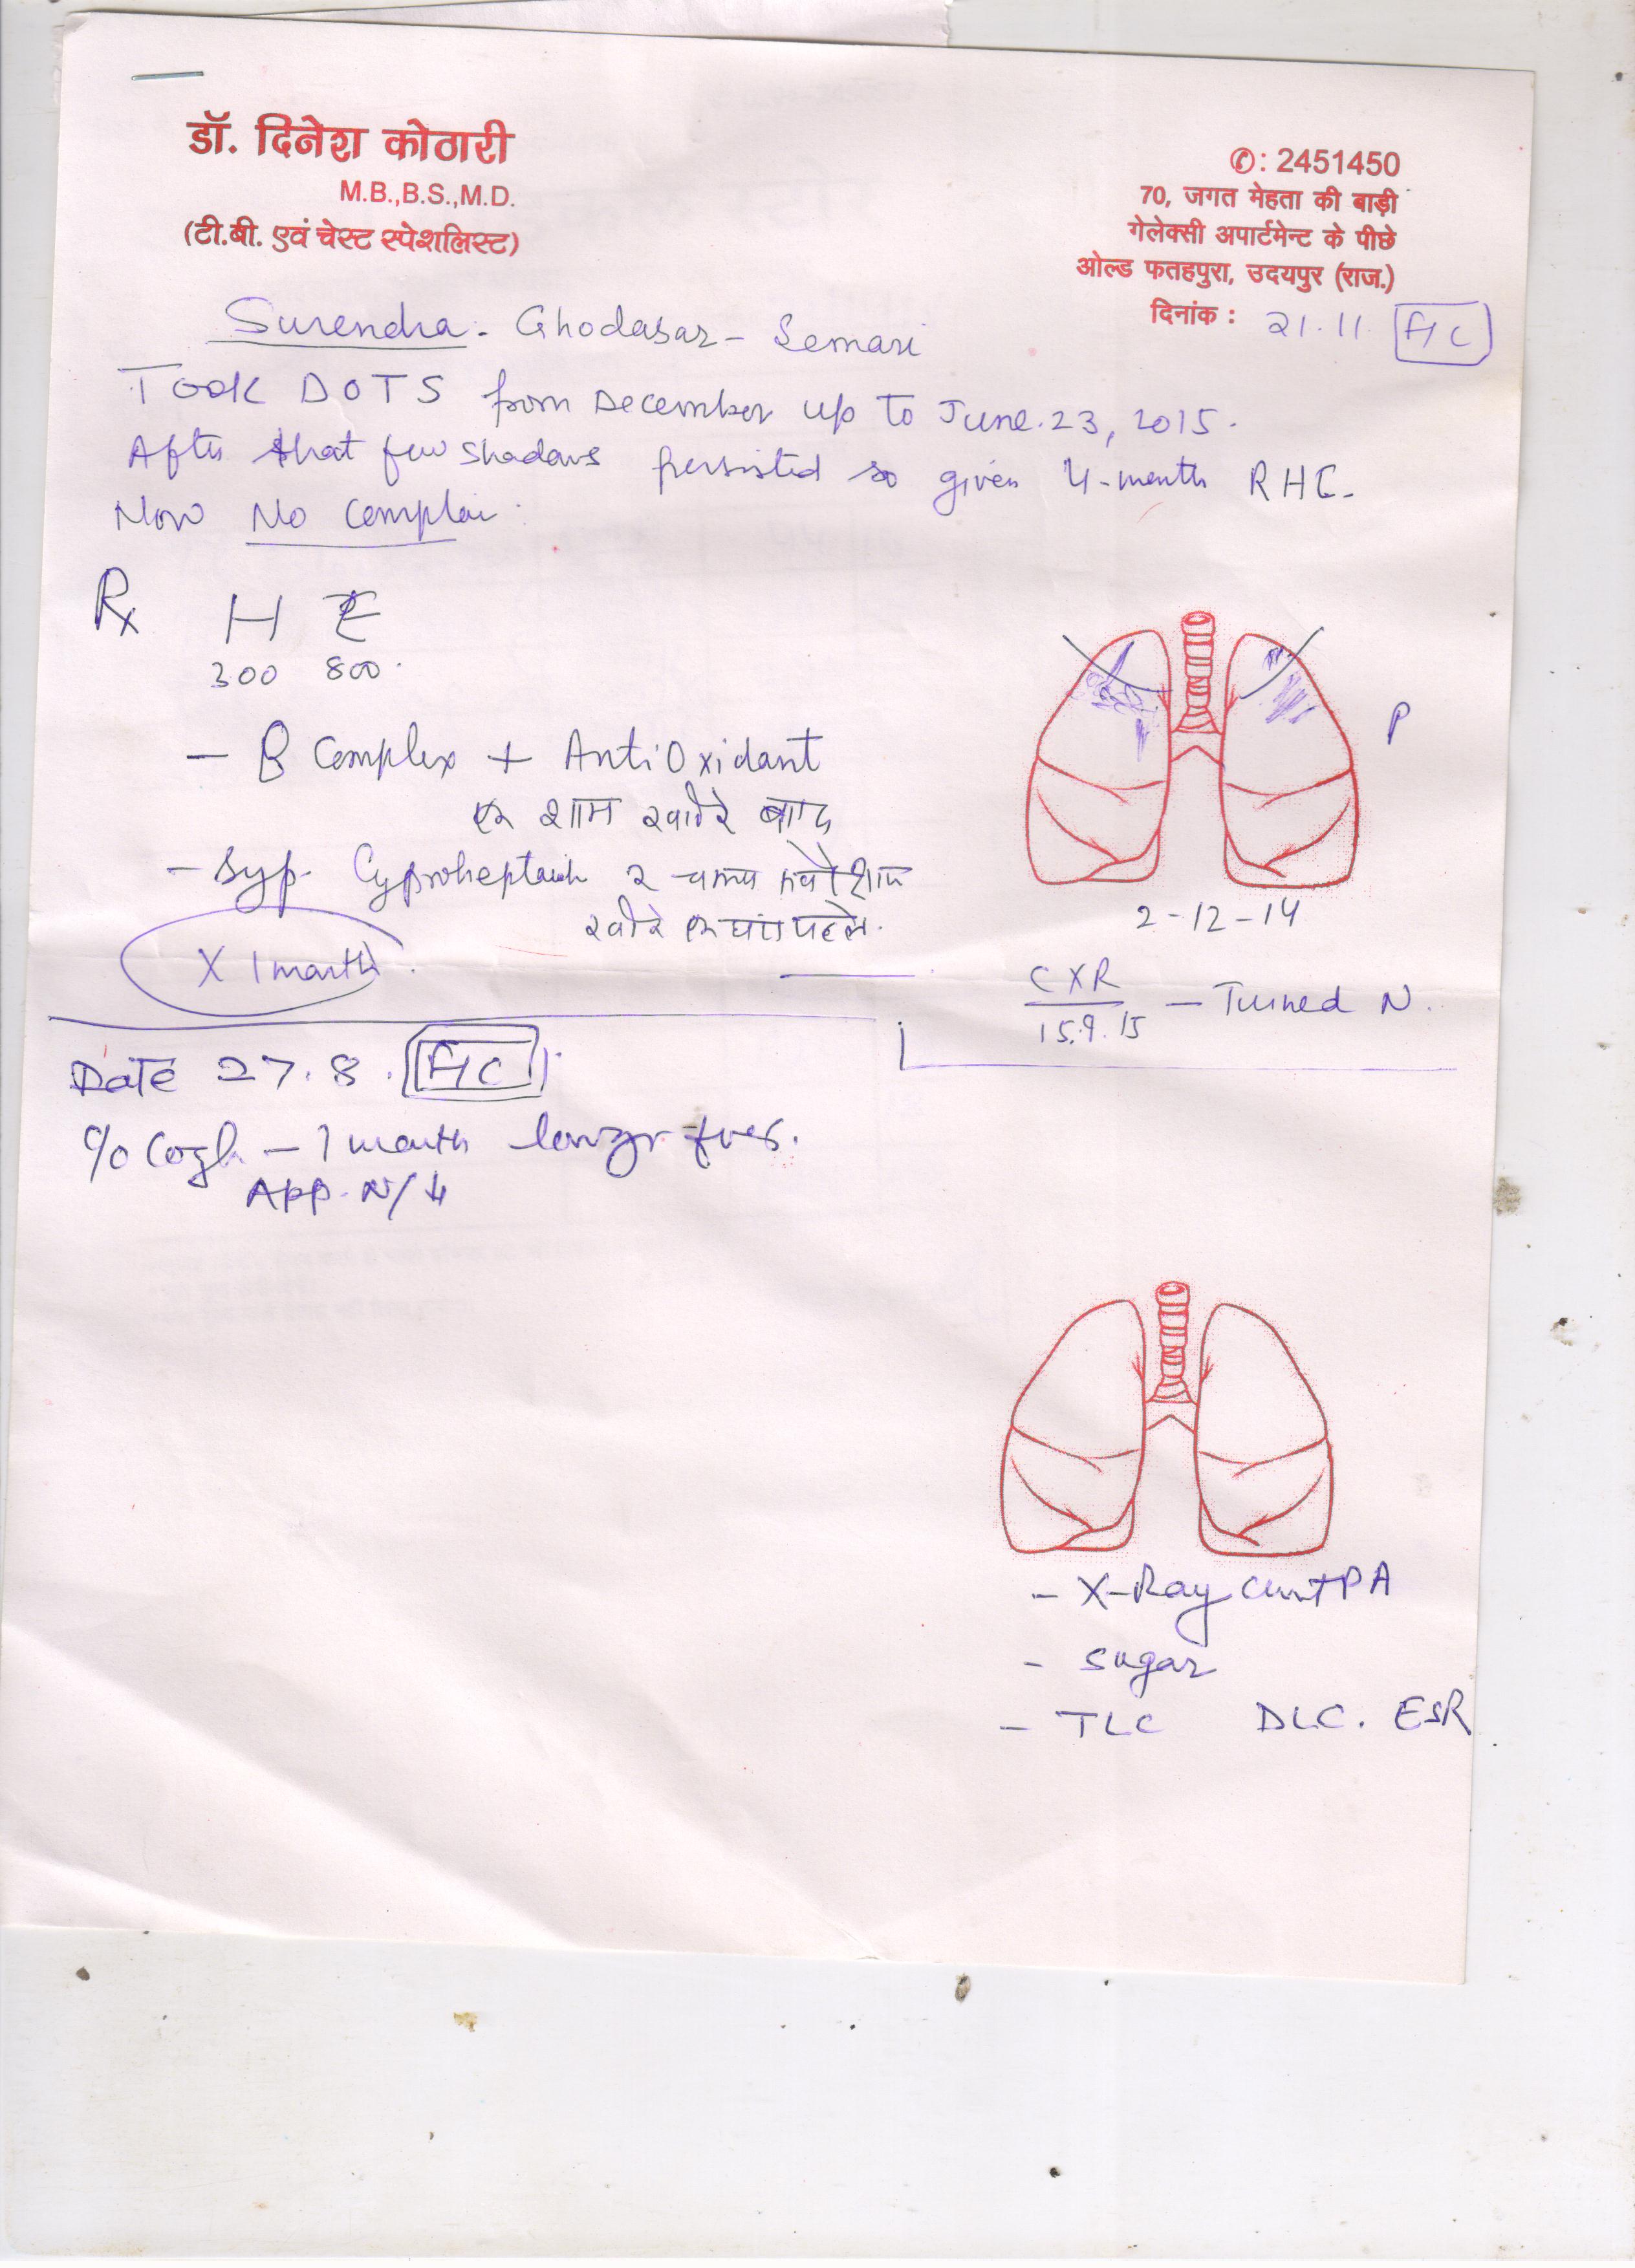 डॉ. दिनेश कोठारी
M.B.,B.S.,M.D.
(टी.बी. एवं चेस्ट स्पेशलिस्ट)
✆: 2451450
70, जगत मेहता की बाड़ी
गेलेक्सी अपार्टमेन्ट के पीछे
ओल्ड फतहपुरा, उदयपुर (राज.)
दिनांक : 21.11
Surendra - Ghodasar - Semari
Took DOTS from December up to June.23, 2015.
After that few shadows persisted so given 4-month RHE.
Now No Complai
Rx H E
300 800
- B Complex + AntiOxidant
एक शाम खाने के बाद
- Syp. 2 चम्मच
पहले
X 1 month
P
2-12-14
CXR
15.9.15 - Turned N.
Date 27.8.
c/o Cogh - 1 month
App. N/↓
- X-Ray Chest PA
- Sugar
- TLC DLC. ESR